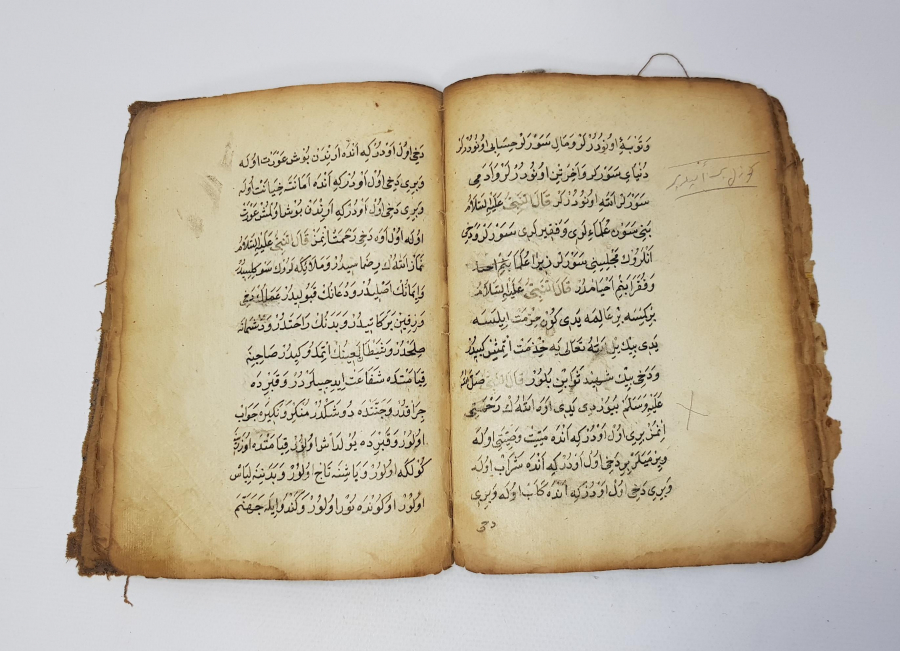 و توبەیِ اونودرلر و مال سورلر حسابی اونودرلر
دنیای سورلر و آخرتین اونودرلر و آدمی
سورلر اللهِ اونودرلر قال النبی علیه السلام
بنی سون علمالری و فقیرلری سورلر و دخی
انلروك مجلسینی سورلر زیرا علما بنم
و فقرا بنم احبامدر قال النبی علیه السلام
بر كسه بر عالمه یدی كون خزمت ایلسه
یدی بیك ییل الله تعالی یه خدمت اتمش كبیدر
و دخی بیك شهید ثوابن بلور قال النبی صلی الله
علیه وسلم بیوردی یدی اوه الله ك رحمتی
انمز بری اول اودر كه انده میت وصیتی اوله
ویرمیلر بر دخی اول اودر كه انده شراب اوله
و بری دخی اول اودر كه انده كلب اوله و بری
دخی اول اودر كه انده اردن بوش عورت اوله
و بری دخی اول اودر كه انده امانته خیانت اوله
و بری دخی اول اودر كه ارندن بوش اولمش عورت
اوله اول اوه دخی رحمت انمز قال النبی علیه السلام
نماز اللهك رضاسیدر و ملائكه لرك سوكلیسیدر
و ایمانك اصلیدر و دعانك قبولیدر عملك دخی
و رزقین بركاتیدر و بدنك راحتدر و دشمانه
سلحدر و شیطانه لعینك اتمه وكیدر صاحبنه
قیامتده شفاعت ایدیجیلردر و قبرده
چراقدر و جنتده دوشكدر منكر و نكیره جواب
اولور و قبرده یولداش اولور قیامتده اوزرینه
كولكه اولور و باشنه تاج اولور و بدننه لباس
اولور اوكونده نور اولور و كندو ایله جهنم